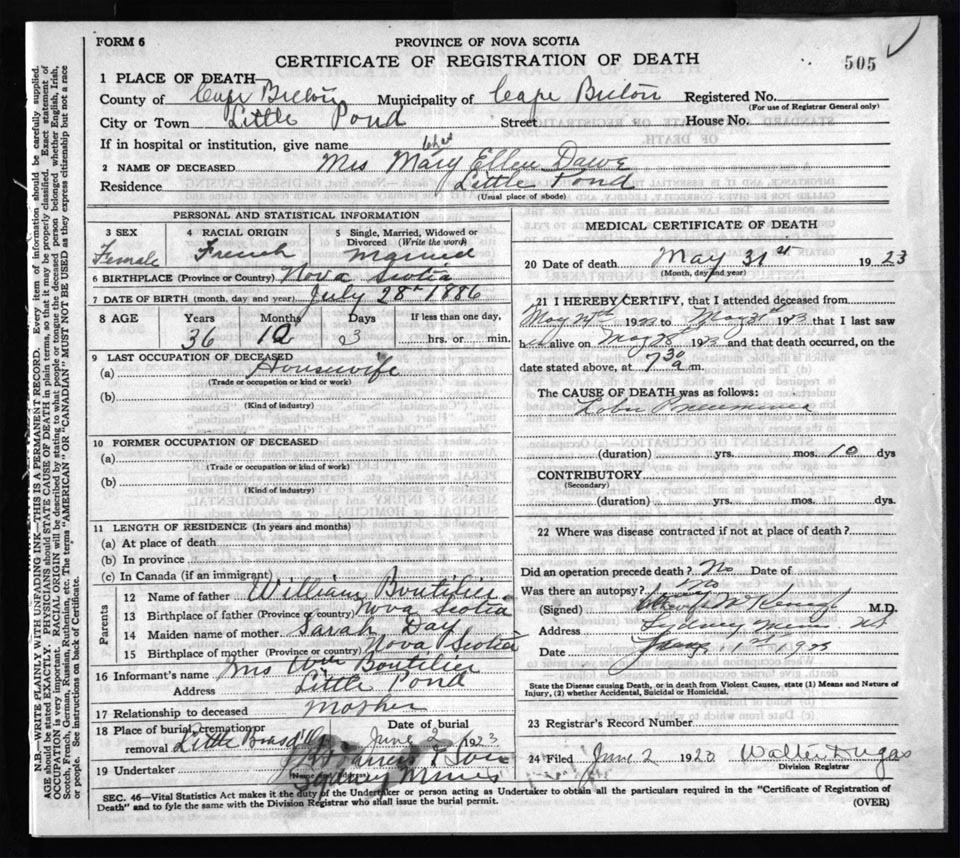 FORM 6
PROVINCE OF NOVA SCOTIA
CERTIFICATE OF REGISTRATION OF DEATH
505
1 PLACE OF DEATH—
County of Cape Breton Municipality of Cape Breton Registered No.
(For use of Registrar General only)
City or Town Little Pond Street House No.
If in hospital or institution, give name
2 NAME OF DECEASED Mrs Mary Ellen Dawe
Residence Little Pond
(Usual place of abode)
PERSONAL AND STATISTICAL INFORMATION
3 SEX Female
4 RACIAL ORIGIN French
5 Single, Married, Widowed or Divorced (Write the word) Married
6 BIRTHPLACE (Province or Country) Nova Scotia
7 DATE OF BIRTH (month, day and year) July 28th 1886
8 AGE Years Months Days If less than one day,
36 10 3 hrs. or min.
9 LAST OCCUPATION OF DECEASED
(a) Housewife
(Trade or occupation or kind of work)
(b)
(Kind of industry)
10 FORMER OCCUPATION OF DECEASED
(a)
(Trade or occupation or kind of work)
(b)
(Kind of industry)
11 LENGTH OF RESIDENCE (In years and months)
(a) At place of death
(b) In province
(c) In Canada (if an immigrant)
Parents
12 Name of father William Boutilier
13 Birthplace of father (Province or country) Nova Scotia
14 Maiden name of mother Sarah Day
15 Birthplace of mother (Province or country) Nova Scotia
16 Informant's name Mrs Wm Boutilier
Address Little Pond
17 Relationship to deceased Mother
18 Place of burial, cremation or removal Little Date of burial June 2 1923
19 Undertaker & Son
(Name and address) Sydney Mines
MEDICAL CERTIFICATE OF DEATH
20 Date of death May 31st 1923
(Month, day and year)
21 I HEREBY CERTIFY, that I attended deceased from
May 19 to May 31st 1923 that I last saw
h alive on May 28 19 and that death occurred, on the
date stated above, at 7.30 a m.
The CAUSE OF DEATH was as follows:
Lobar Pneumonia
(duration) yrs. mos. 10 dys
CONTRIBUTORY
(Secondary)
(duration) yrs. mos. dys.
22 Where was disease contracted if not at place of death?
Did an operation precede death? No Date of
Was there an autopsy? No
(Signed) M.D.
Address Sydney Mines NS
Date June 1st
State the Disease Causing Death, or in death from Violent Causes, state (1) Means and Nature of
Injury, (2) whether Accidental, Suicidal or Homicidal.
23 Registrar's Record Number
24 Filed June 2 1923 Walter Dugas
Division Registrar
SEC. 46—Vital Statistics Act makes it the duty of the Undertaker or person acting as Undertaker to obtain all the particulars required in the "Certificate of Registration of
Death" and to fyle the same with the Division Registrar who shall issue the burial permit.
(OVER)
N.B.—WRITE PLAINLY WITH UNFADING INK—THIS IS A PERMANENT RECORD. Every item of information should be carefully supplied.
AGE should be stated EXACTLY. PHYSICIANS should STATE CAUSE OF DEATH in plain terms, so that it may be properly classified. Exact statement of
OCCUPATION is very important. RACIAL ORIGIN will be described by stating to what people or tongue the deceased person belonged whether English, Irish,
Scotch, French, German, Russian, Ruthenian, etc. The terms "AMERICAN" OR "CANADIAN" MUST NOT BE USED as they express citizenship but not a race
or people. See instructions on back of Certificate.